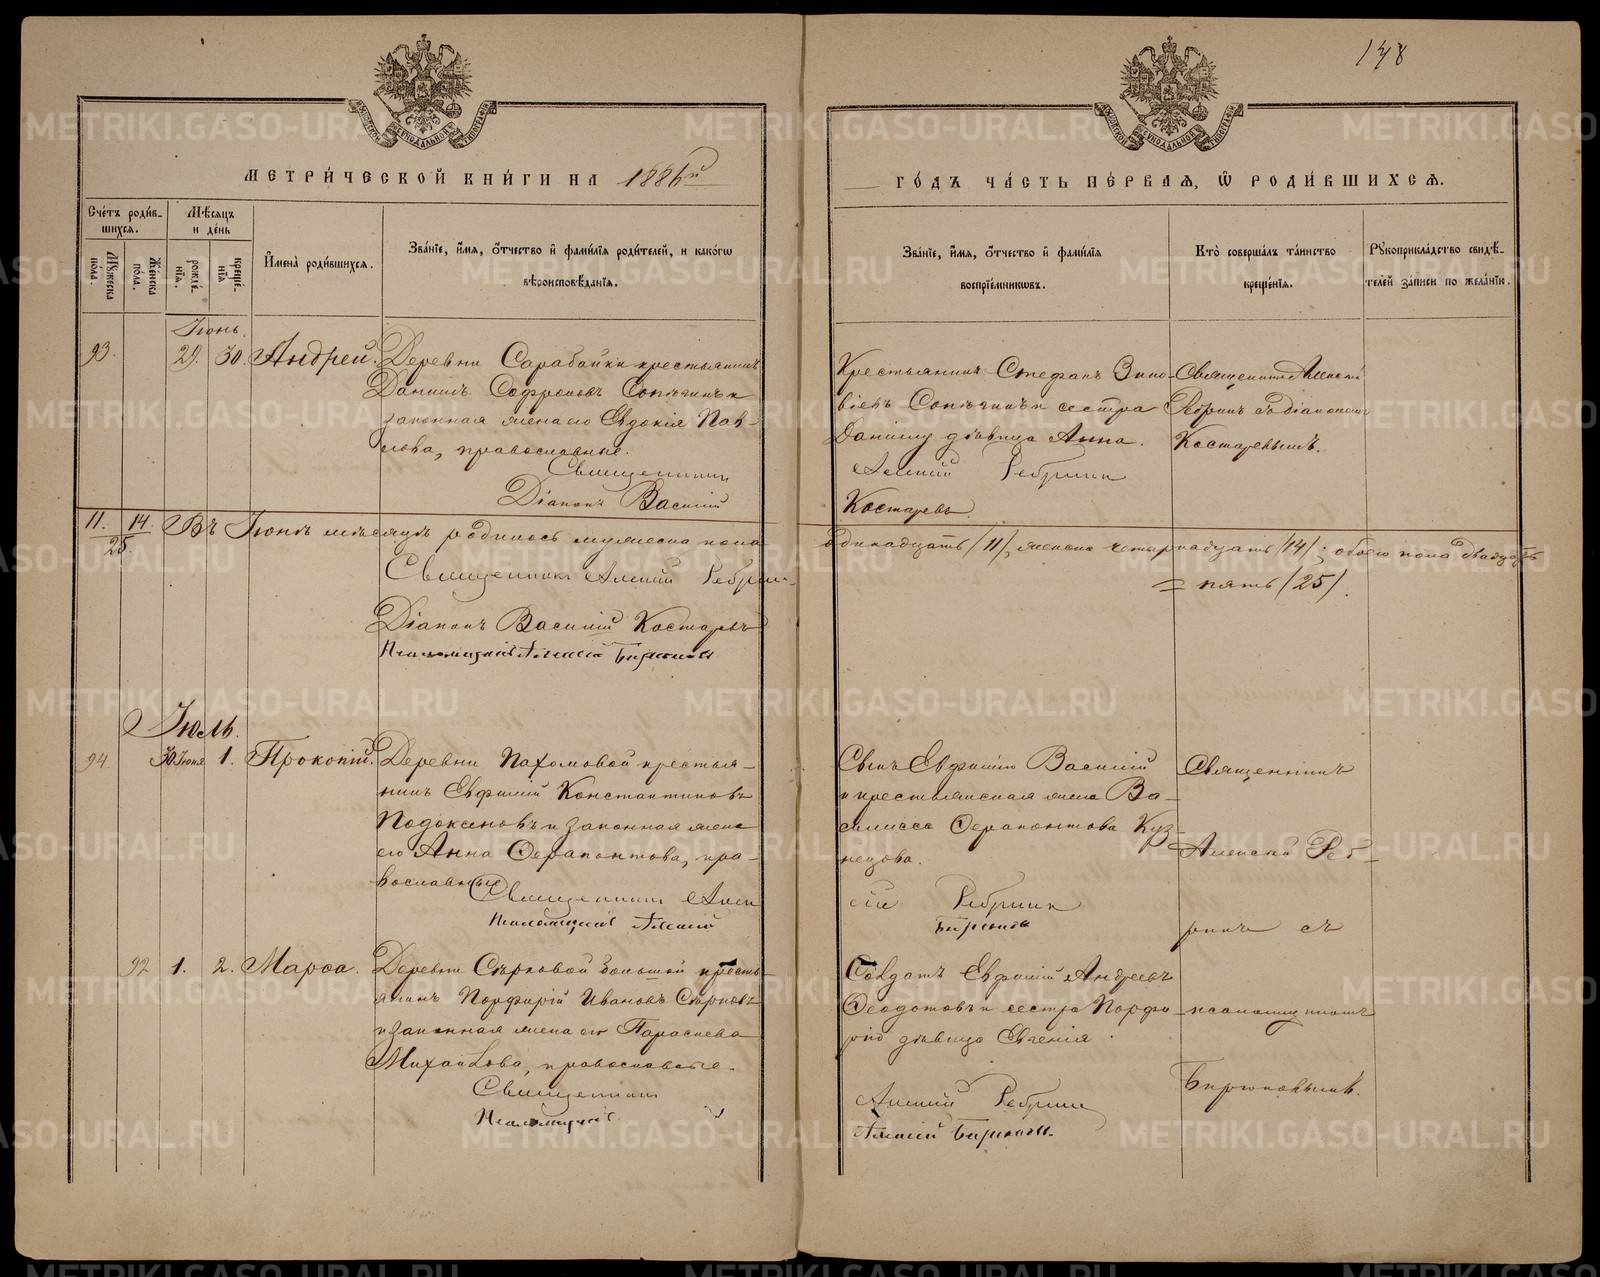 148
МЕТРИ́ЧЕСКОЙ КНИ́ГИ НА 1886й
ГО́ДЪ ЧА́СТЬ ПЕ́РВАЯ, Ѡ РОДИ́ВШИХСЯ.
Сче́тъ роди́в-
шихся.
Мѣ́сяцъ
и де́нь
Му́жеска
по́ла.
Же́нска
по́ла.
рожде́-
нїя.
креще́-
нїя
И҆мена̀ роди́вшихся.
Зва́нїе, и҆́мя, ѻ҆́тчество и҆ фами́лїя роди́телей, и како́гѡ
вѣроисповѣ́данїя.
Зва́нїе, и҆́мя, ѻ҆́тчество и҆ фами́лїя
воспрїе́мникѡвъ.
Кто̀ соверша́лъ та́инство
креще́нїя.
Рꙋкоприкла́дство свидѣ́-
телей за́писи по жела́нїю.
Іюнь.
93. 29. 30. Андрей. Деревни Сарабайки крестьянинъ
Даніилъ Софроновъ Сопѣгинъ и
законная жена его Евдокія Пав-
лова, православные.
Священникъ
Діаконъ Василій
Крестьянинъ Стефанъ Зино-
віевъ Сопѣгинъ и сестра
Даніилу дѣвица Анна.
Алексій Ребринъ
Костаревъ.
Священникъ Алексій
Ребринъ съ діакономъ
Костаревымъ.
11. 14. Въ Іюнѣ мѣсяцѣ родилось мужеска пола
25.
одинадцать /11/, женска четырнадцать /14/; обоего пола двадцать
= пять /25/.
Священникъ Алексій Ребрин-
Діаконъ Василій Костаревъ
Псаломщикъ Алексій Бирюковъ
Іюль.
94. 30 Іюня 1. Прокопій. Деревни Пахомовой крестья-
нинъ Евфимій Константиновъ
Подоксеновъ и законная жена
его Анна Ѳерапонтова, пра-
вославные
Священникъ Алек
Псаломщикъ Алексій
Сынъ Евфимію Василій
и крестьянская жена Ва-
силисса Ѳерапонтова Куз
нецова.
сій Ребринъ
Бирюковъ
Священникъ
Алексій Реб-
ринъ съ
92 1. 2. Марѳа. Деревни Сѣрковой Большой кресть-
янинъ Порфирій Ивановъ Сѣрковъ
и законная жена его Параскева
Михайлова, православные.
Священникъ
Псаломщикъ
Солдатъ Евфимій Андреевъ
Ѳеодотовъ и сестра Порфи-
рію дѣвица Евгенія.
Алексій Ребринъ
Алексій Бирюковъ.
псаломщикомъ
Бирюковымъ.
METRIKI.GASO-URAL.RU